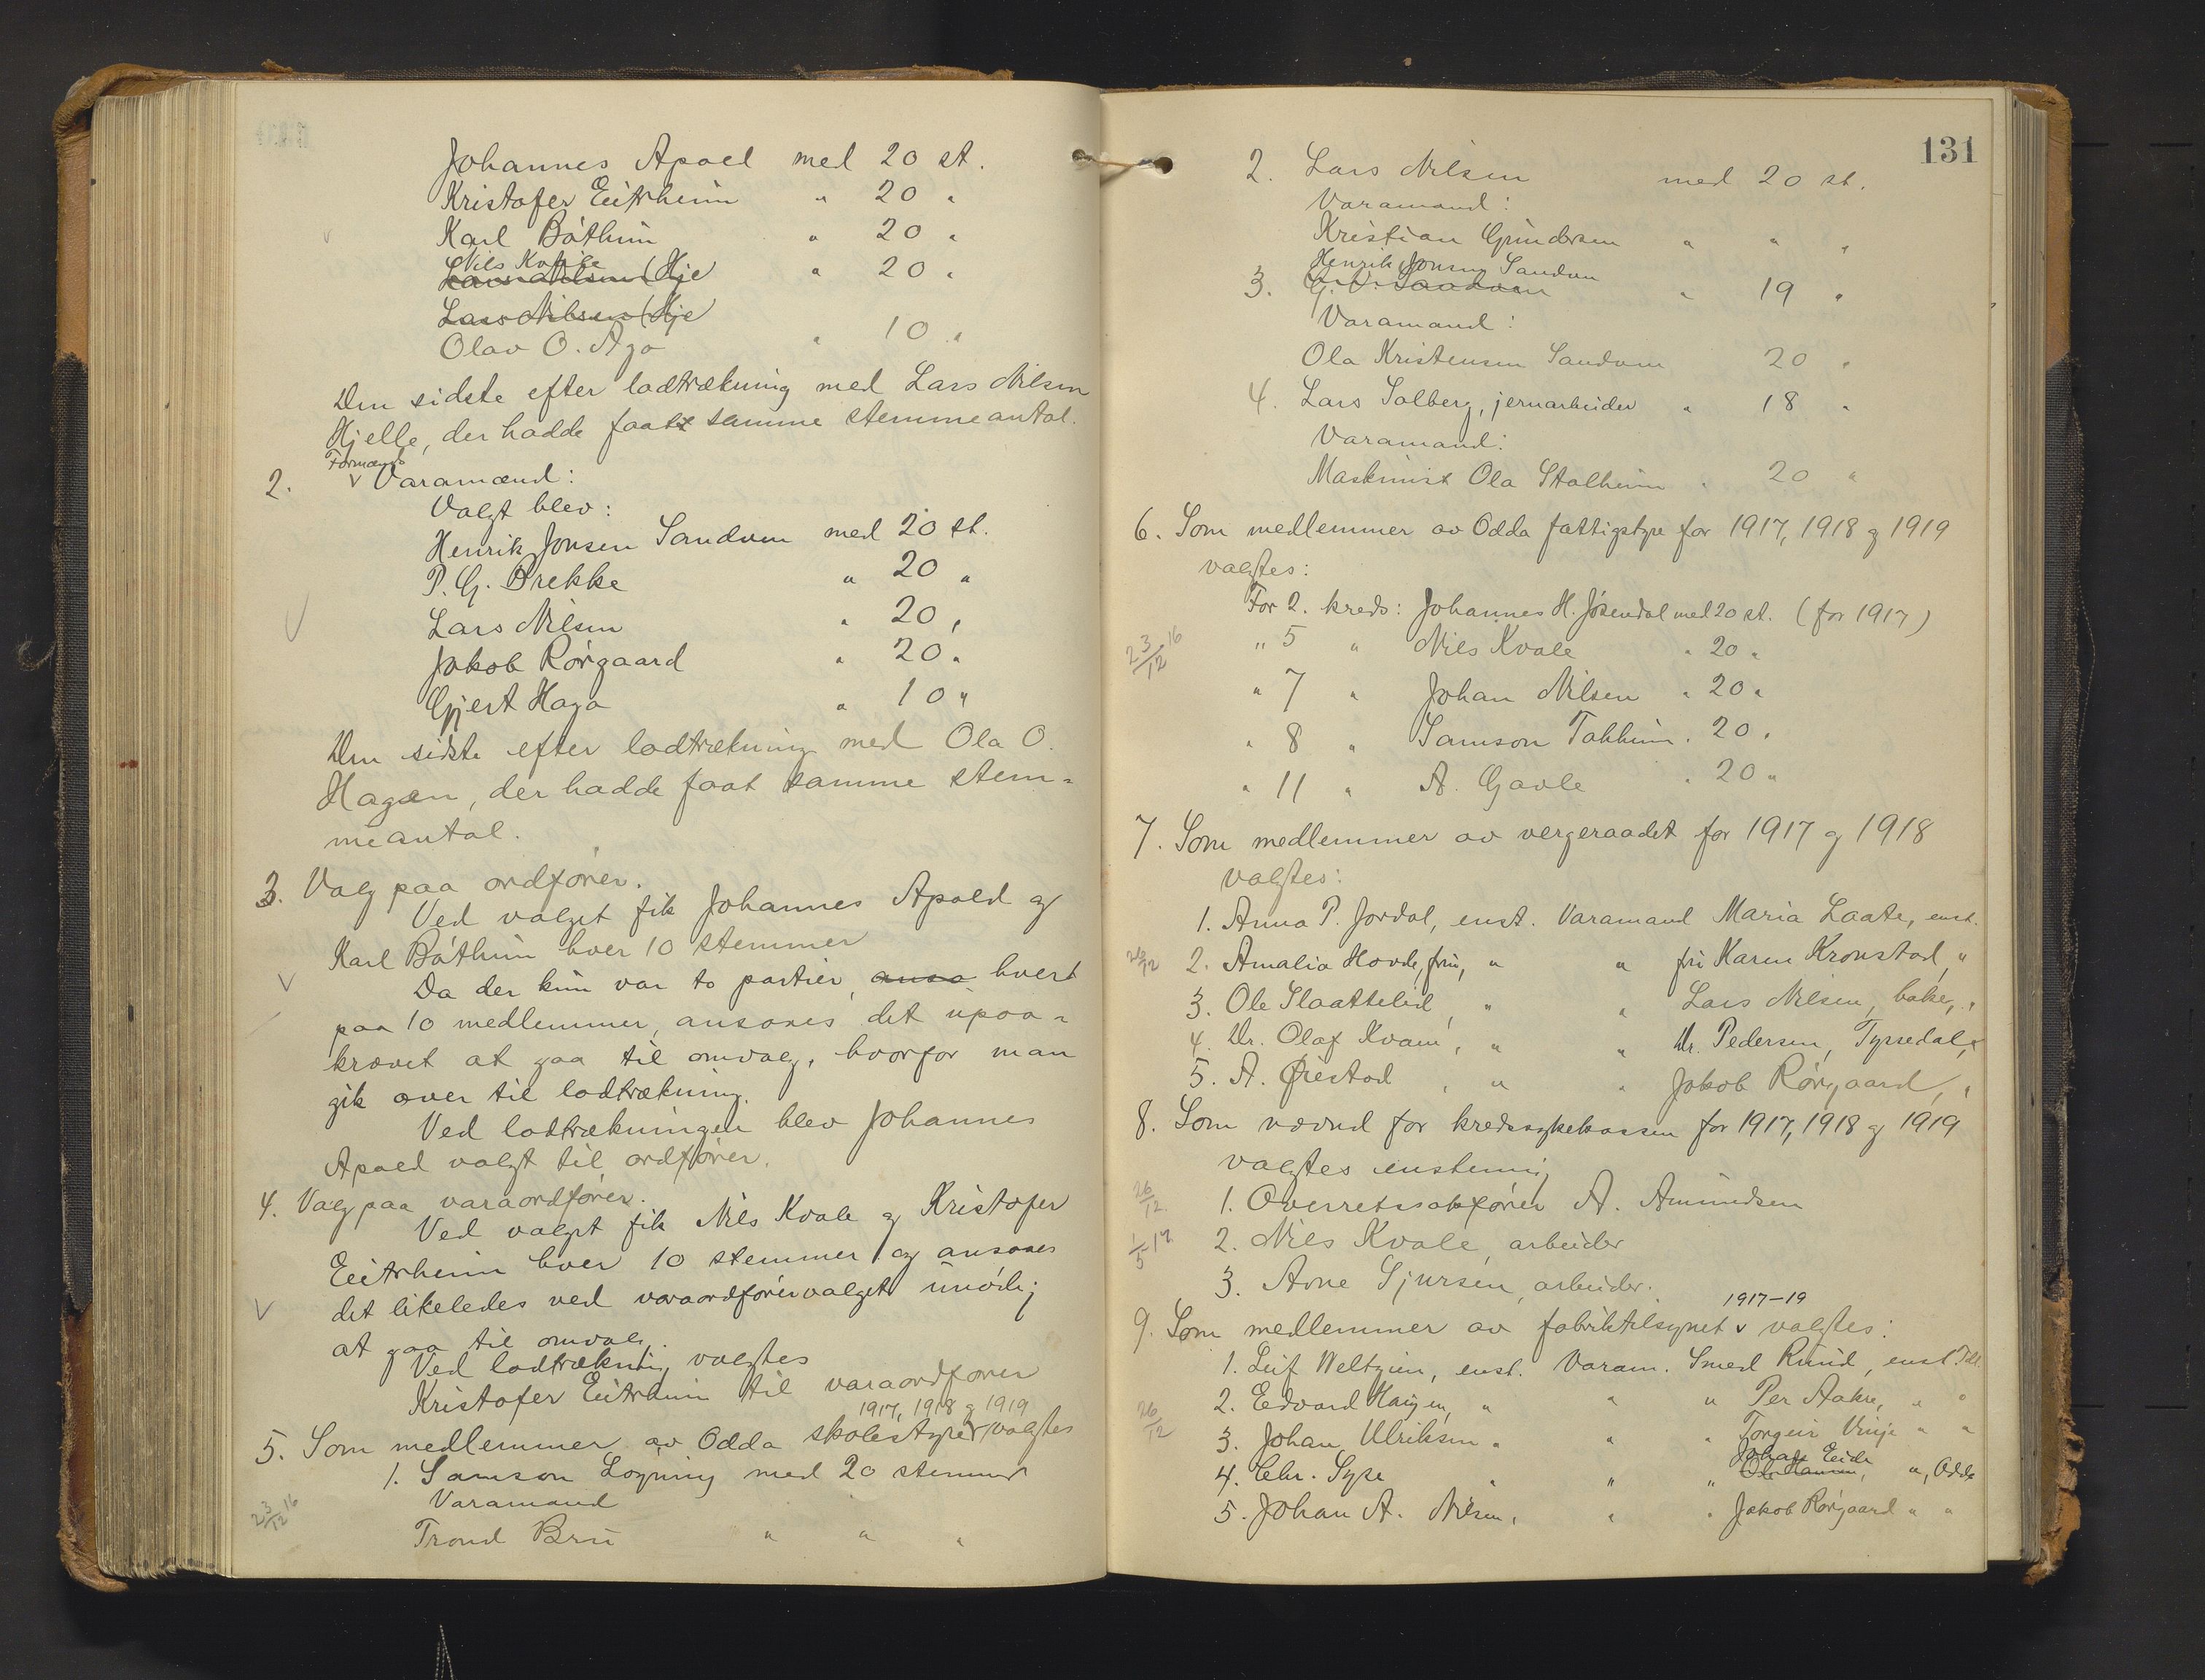 Johannes Apold med 20 st.
Kristofer Eitrheim " 20 "
Karl Bótheim " 20 "
Nils Kvale
Lars Nilsen (Hje " 20 "
Lars Nilsen (Hje
Olav O. Aga " 10 "
Den sidste efter lodtrækning med Lars Nilsen
Hjelle, der hadde faat samme stemmeantal.
Formænds
2. v Varamænd:
Valgt blev:
Henrik Jonsen Sandven med 20 st.
P. G. Brekke " 20 "
Lars Nilsen " 20 "
Jakob Rórgaard " 20 "
Gjert Haga " 10 "
Den sidste efter lodtrækning med Ola O.
Hagen, der hadde faat samme stem=
meantal.
3. Valg paa ordfórer.
Ved valget fik Johannes Apold og
Karl Bótheim hver 10 stemmer
Da der kun var to partier, ansa hvert
paa 10 medlemmer, ansaaes det upaa=
krævet at gaa til omvalg, hvorfor man
gik over til lodtrækning.
Ved lodtrækningen blev Johannes
Apold valgt til ordfórer.
4. Valg paa varaordfórer.
Ved valget fik Nils Kvale og Kristofer
Eitrheim hver 10 stemmer og ansaaes
det likeledes ved varaordfórervalget unódig
at gaa til omvalg.
Ved lodtrækning valgtes
Kristofer Eitrheim til varaordfórer
1917, 1918 g 1919
5. Som medlemmer av Odda skolestyre v valgtes
1. Samson Lógning med 20 stemmer
23/12 16
Varamand
Trond Bru " " "
131
2. Lars Nilsen med 20 st.
Varamand:
Kristian Gundersen " " "
Henrik Jonsen Sandven
3. G. V. Sandven " 19 "
Varamand:
Ola Kristensen Sandven 20 "
4. Lars Solberg, jernarbeider " 18 "
Varamand:
Maskinist Ola Stalheim " 20 "
6. Som medlemmer av Odda fattigstyre for 1917, 1918 g 1919
valgtes:
For 2. kreds: Johannes H. Jósendal med 20 st. (for 1917)
23/12 16
" 5 " Nils Kvale " 20 "
" 7 " Johan Nilsen " 20 "
" 8 " Samson Tokheim " 20 "
" 11 " A. Gavle " 20 "
7. Som medlemmer av vergeraadet for 1917 g 1918
valgtes:
1. Anna P. Jordal, enst. Varamand Maria Laate, enst.
26/12
2. Amalia Hovde, fru, " " fru Karen Kronstad, "
3. Ole Slaattelid, " " Lars Nilsen, baker, "
4. Dr. Olaf Kvam, " " Dr. Pedersen, Tyssedal, "
5. A. Øiestad, " " Jakob Rórgaard, "
8. Som nævnd for kredssykekassen for 1917, 1918 g 1919
valgtes enstemmig
26/12
1. Overretssakfórer A. Amundsen
1/5 17
2. Nils Kvale, arbeider
3. Arne Sjursen, arbeider.
1917-19
9. Som medlemmer av fabriktilsynet v valgtes:
1. Leif Weltzien, enst. Varam. Smed Ruud, enst Tdl
26/12
2. Edvard Haugen, " " " Per Aakre, " "
3. Johan Ulriksen " " " Torgeir Vinje " "
Johan Eide
4. Chr. Sype " " " Ole Hansen, ", Odda
5. Johan A. Nilsen, " " Jakob Rórgaard " "